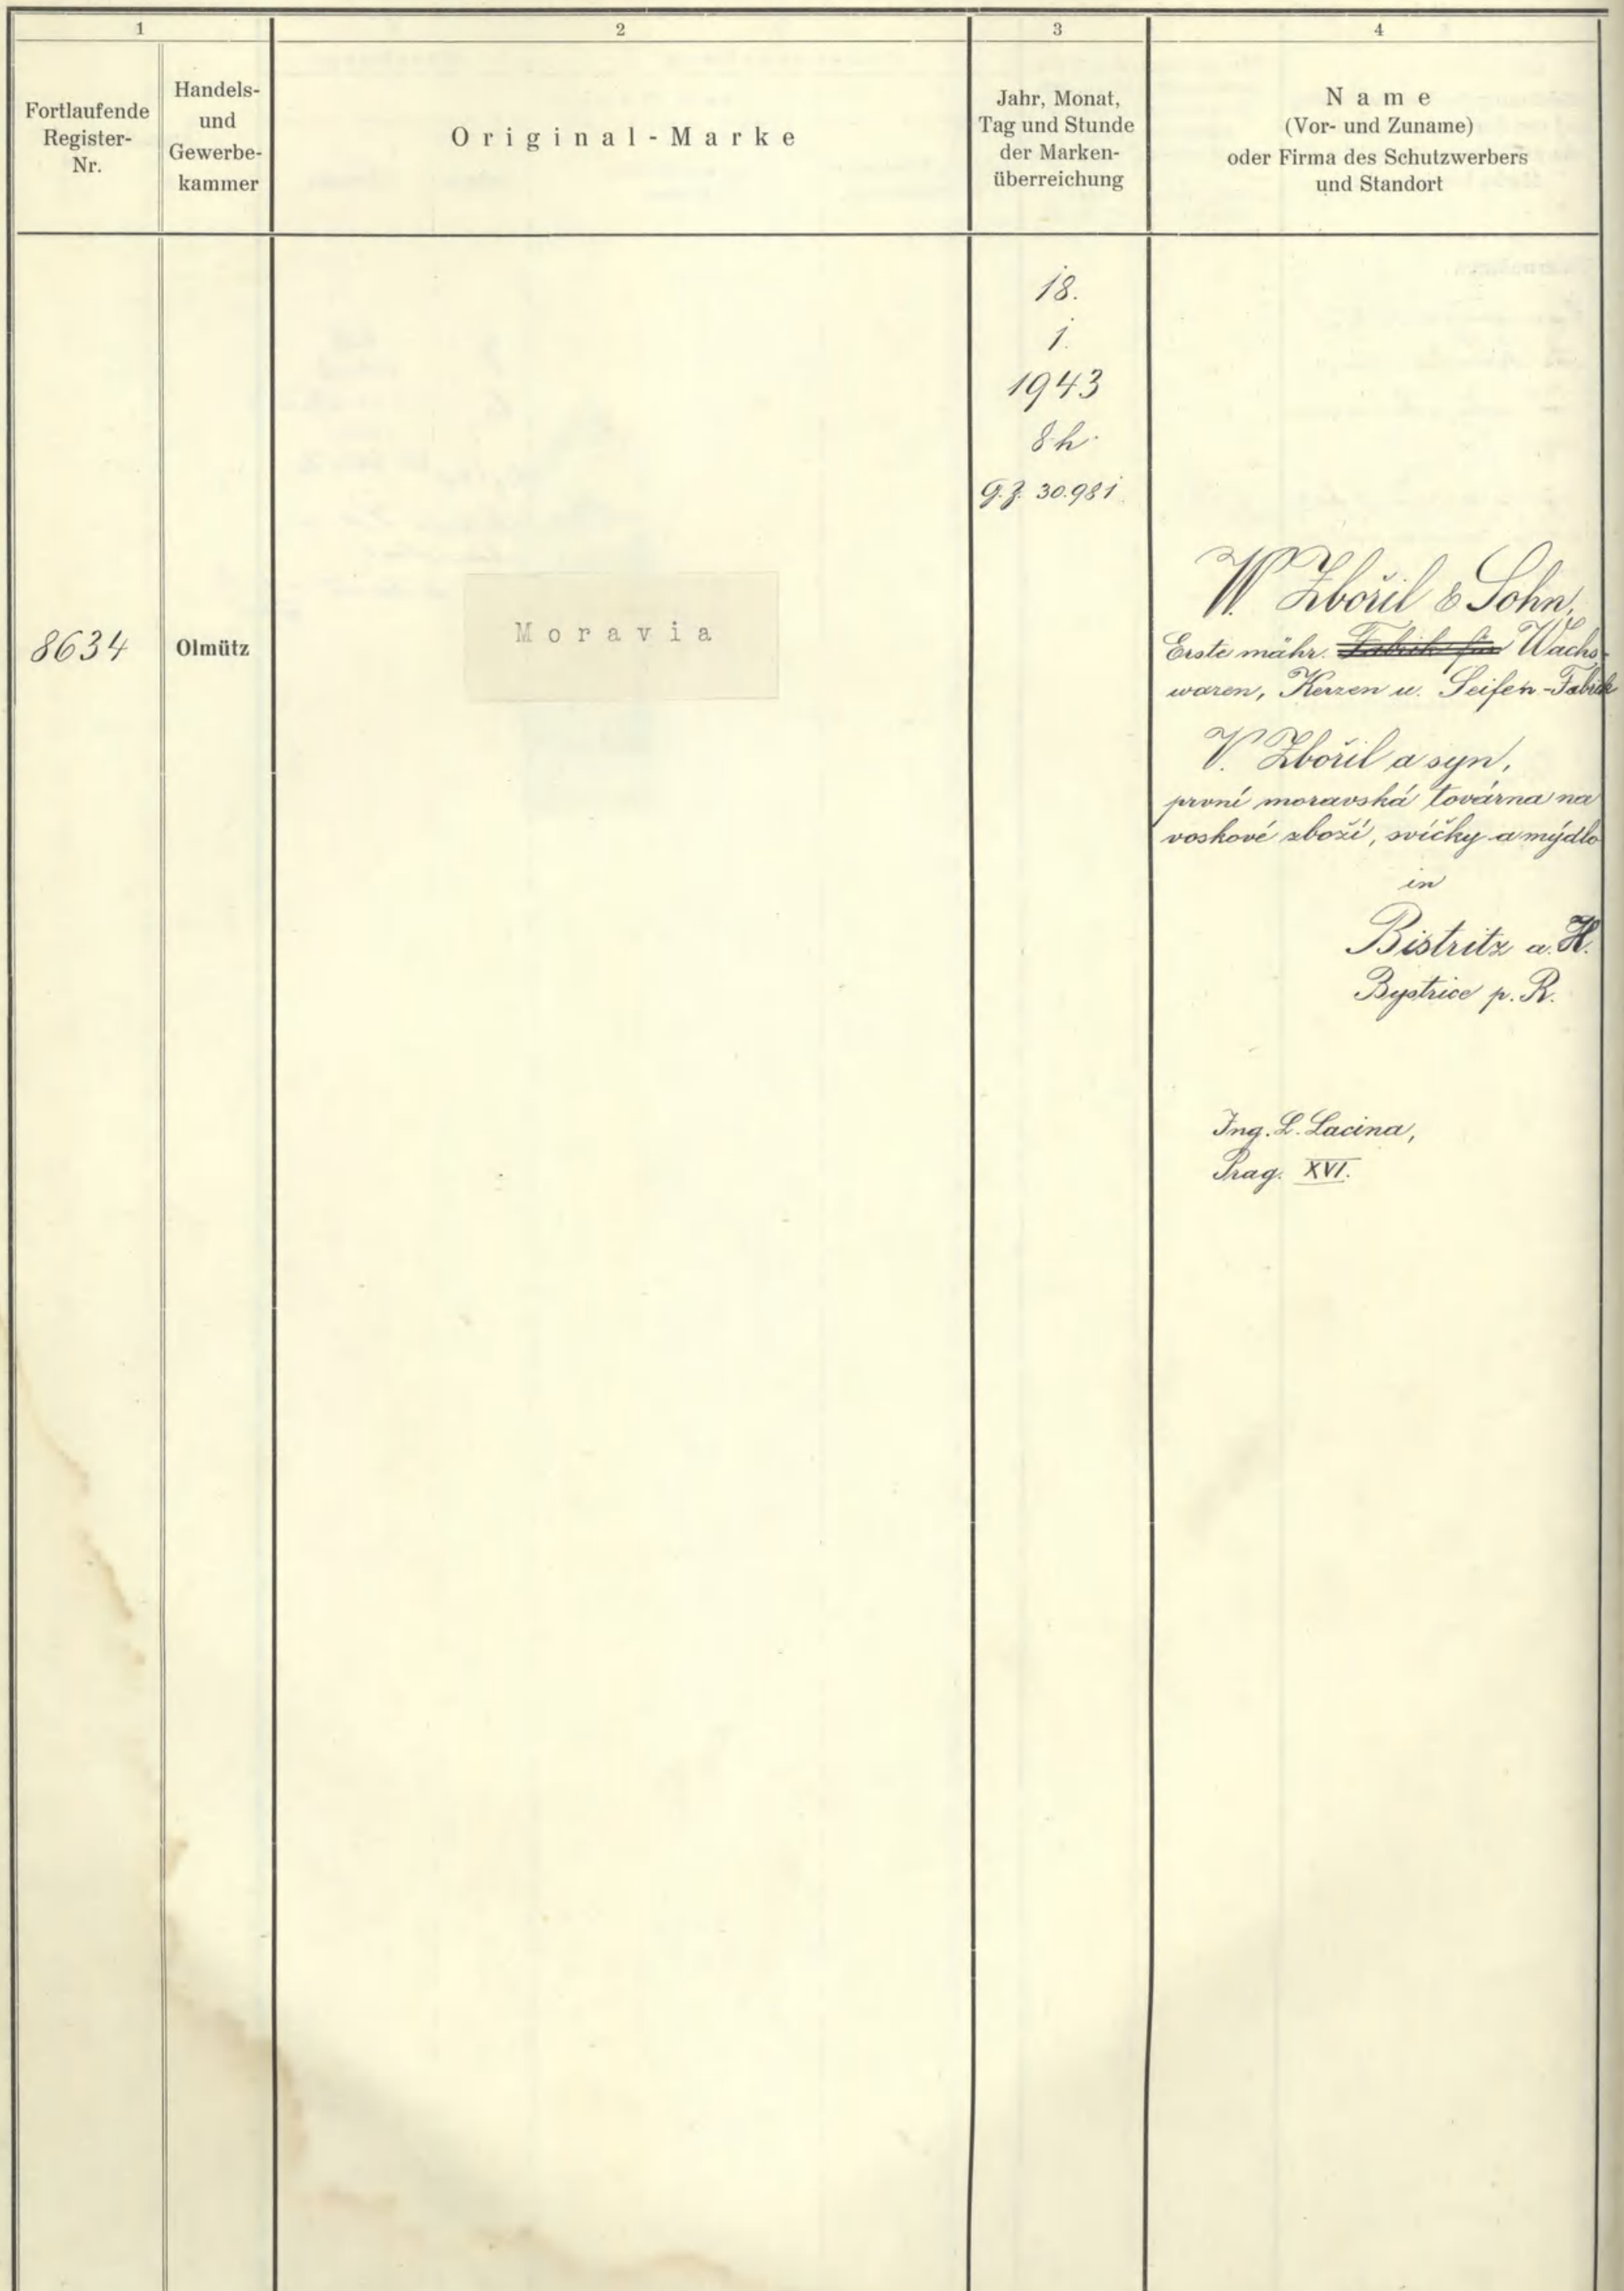 1
2
3
4
Fortlaufende
Register-
Nr.
Handels-
und
Gewerbe-
kammer
Original-Marke
Jahr, Monat,
Tag und Stunde
der Marken-
überreichung
Name
(Vor- und Zuname)
oder Firma des Schutzwerbers
und Standort
8634
Olmütz
Moravia
18.
1.
1943
8 h.
G. Z. 30.981.
W. Zbořil & Sohn,
Erste mähr. Fabrik für Wachs-
waren, Kerzen u. Seifen-Fabrik
V. Zbořil a syn,
první moravská továrna na
voskové zboží, svíčky a mýdlo
in
Bistritz a. H.
Bystrice p. R.
Ing. L. Lacina,
Prag. XVI.